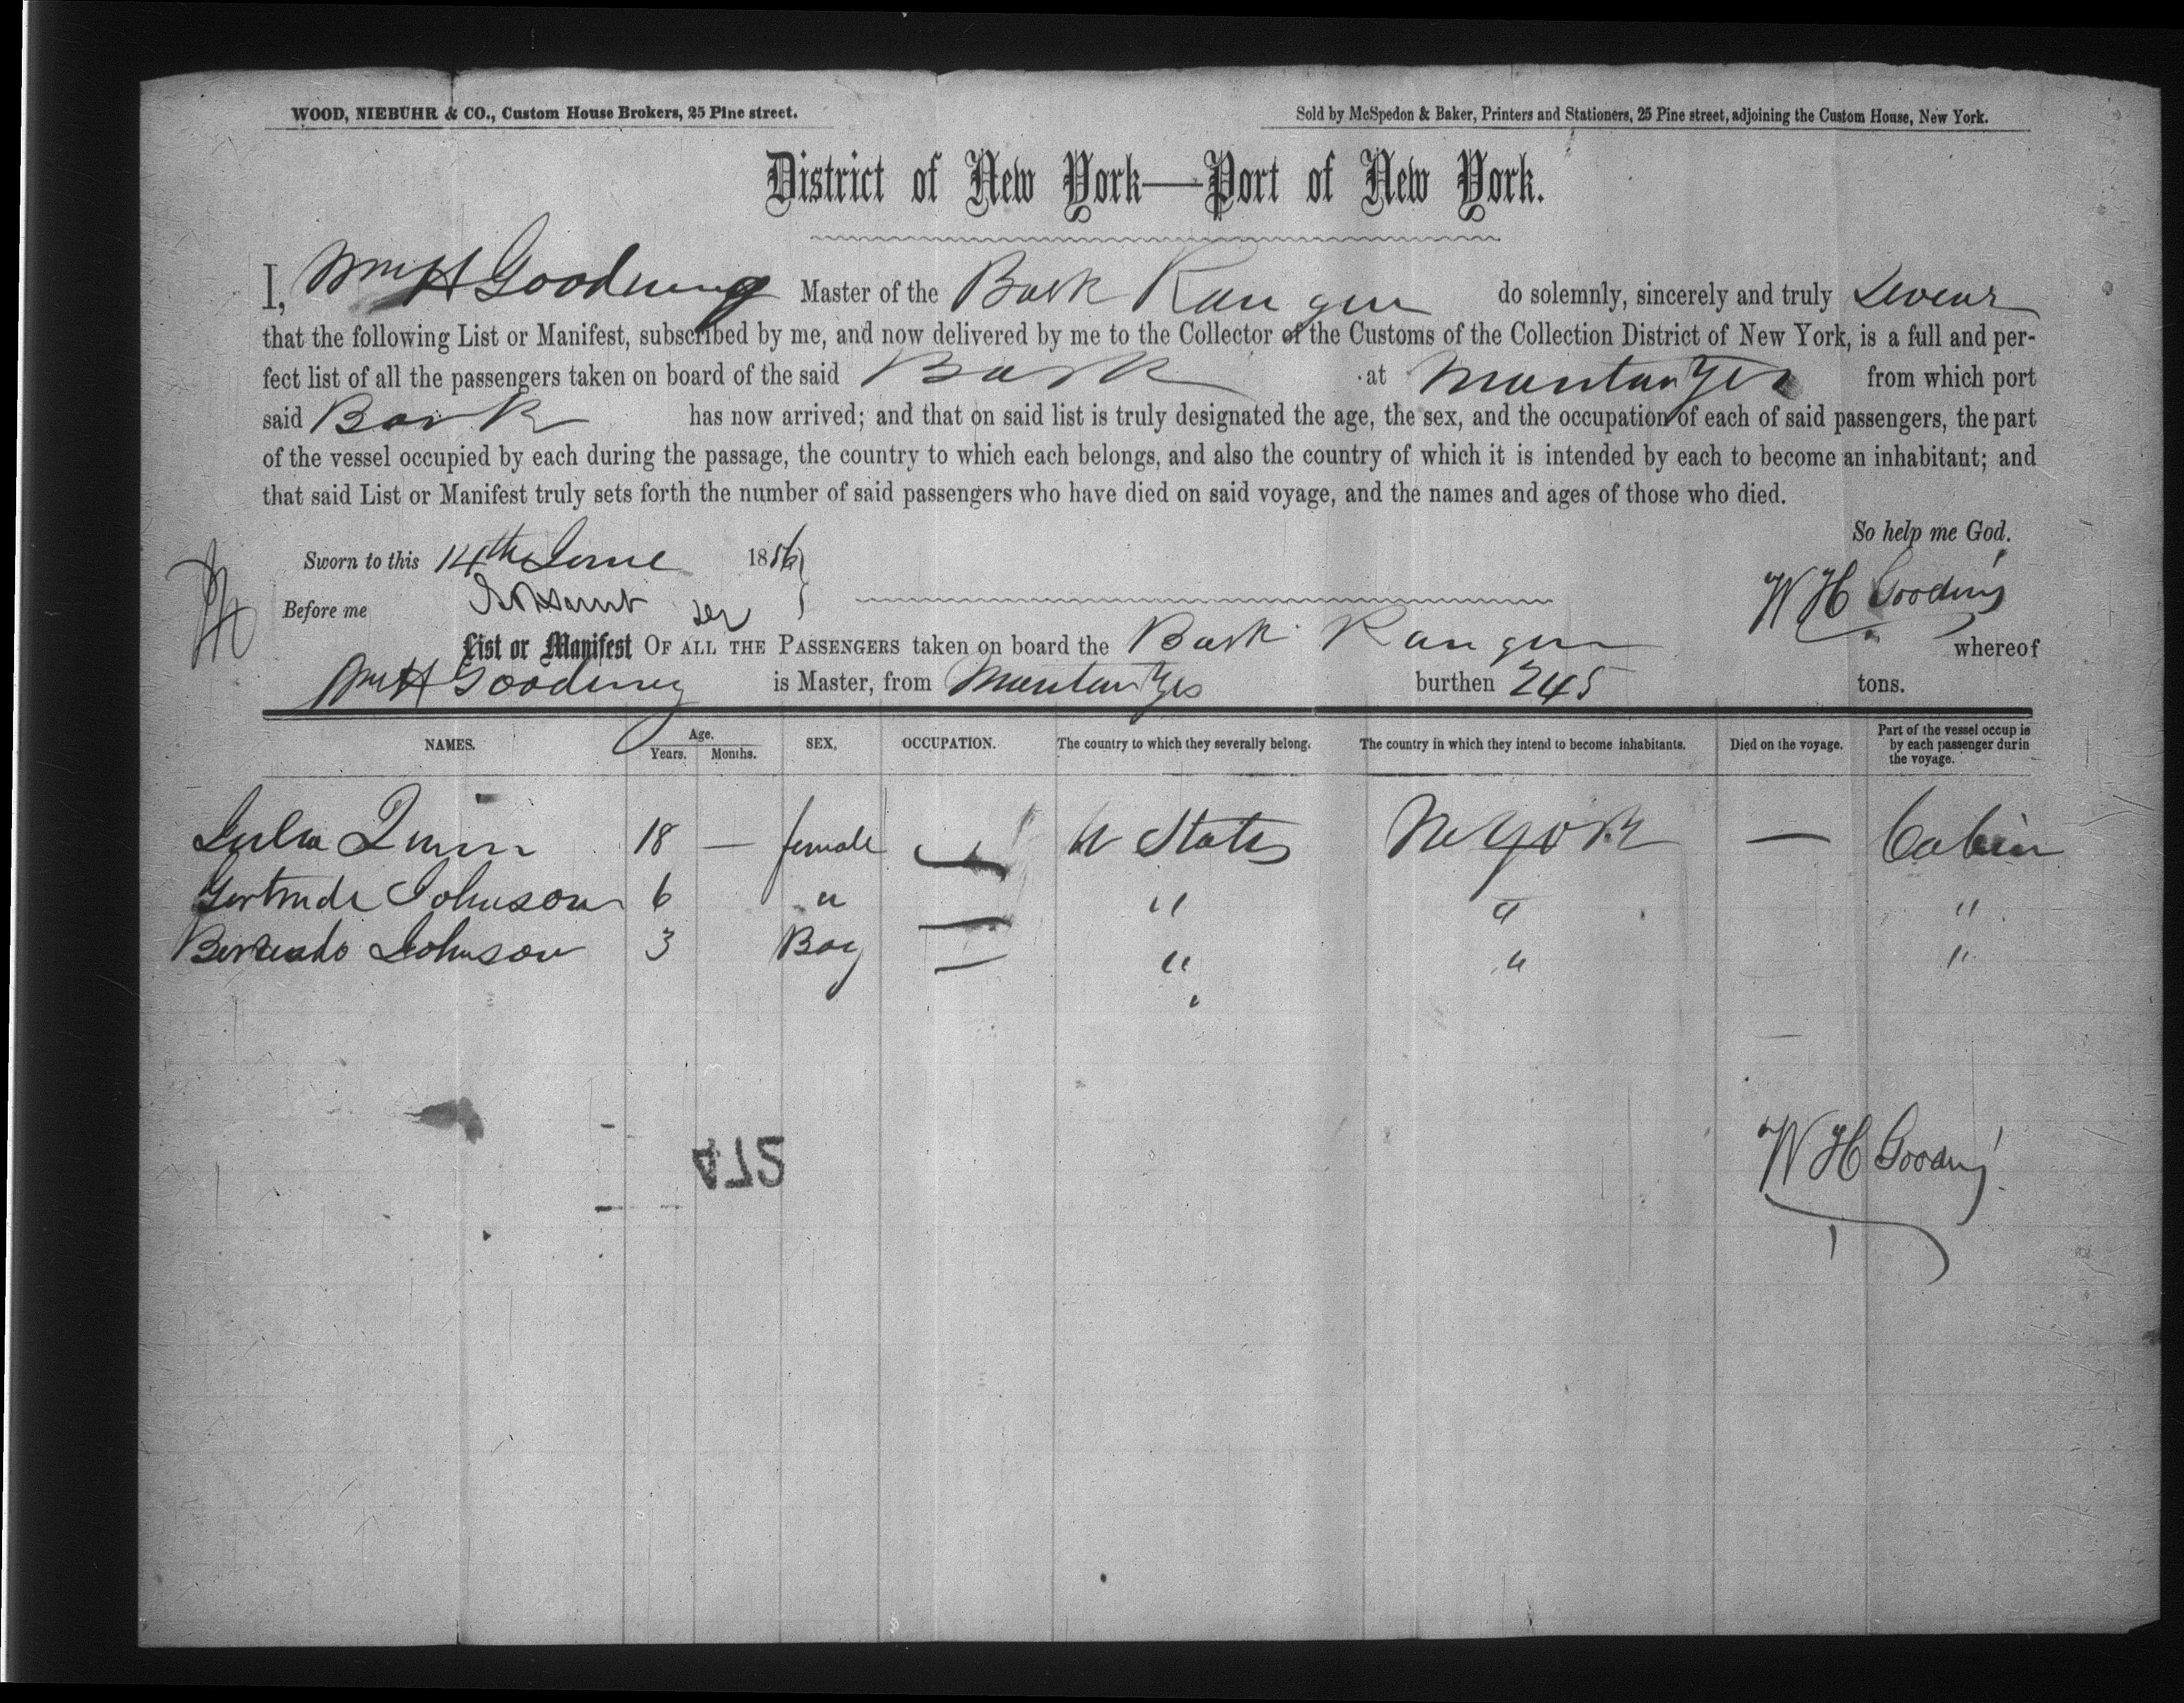 WOOD, NIEBUHR & CO., Custom House Brokers, 25 Pine street.
Sold by McSpedon & Baker, Printers and Stationers, 25 Pine street, adjoining the Custom House, New York.
District of New York—Port of New York.
I, Wm H Gooding Master of the Bark Ranger do solemnly, sincerely and truly Swear
that the following List or Manifest, subscribed by me, and now delivered by me to the Collector of the Customs of the Collection District of New York, is a full and per-
fect list of all the passengers taken on board of the said Bark at Mantanzes from which port
said Bark has now arrived; and that on said list is truly designated the age, the sex, and the occupation of each of said passengers, the part
of the vessel occupied by each during the passage, the country to which each belongs, and also the country of which it is intended by each to become an inhabitant; and
that said List or Manifest truly sets forth the number of said passengers who have died on said voyage, and the names and ages of those who died.
So help me God.
Sworn to this 14th June 1856
W H Gooding
Before me
List or Manifest OF ALL THE PASSENGERS taken on board the Bark Ranger whereof
Wm H Gooding is Master, from Mantanzes burthen 245 tons.
NAMES. Age. Years. Months. SEX, OCCUPATION. The country to which they severally belong. The country in which they intend to become inhabitants. Died on the voyage. Part of the vessel occup ie by each passenger durin the voyage.
Julia Quinn 18 — female U States N York — Cabin
Gertrude Johnson 6 " " " "
Johnson 3 Boy — " " "
272
W H Gooding